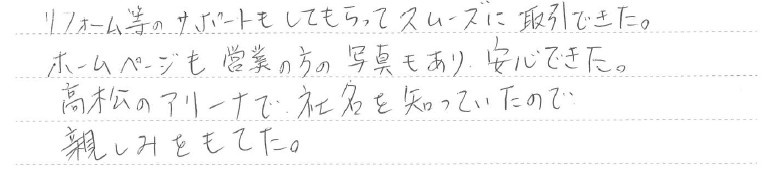 リフォーム等のサポートもしてもらってスムーズに取引できた。
ホームページも営業の方の写真もあり、安心できた。
高松のアリーナで社名を知っていたので
親しみをもてた。